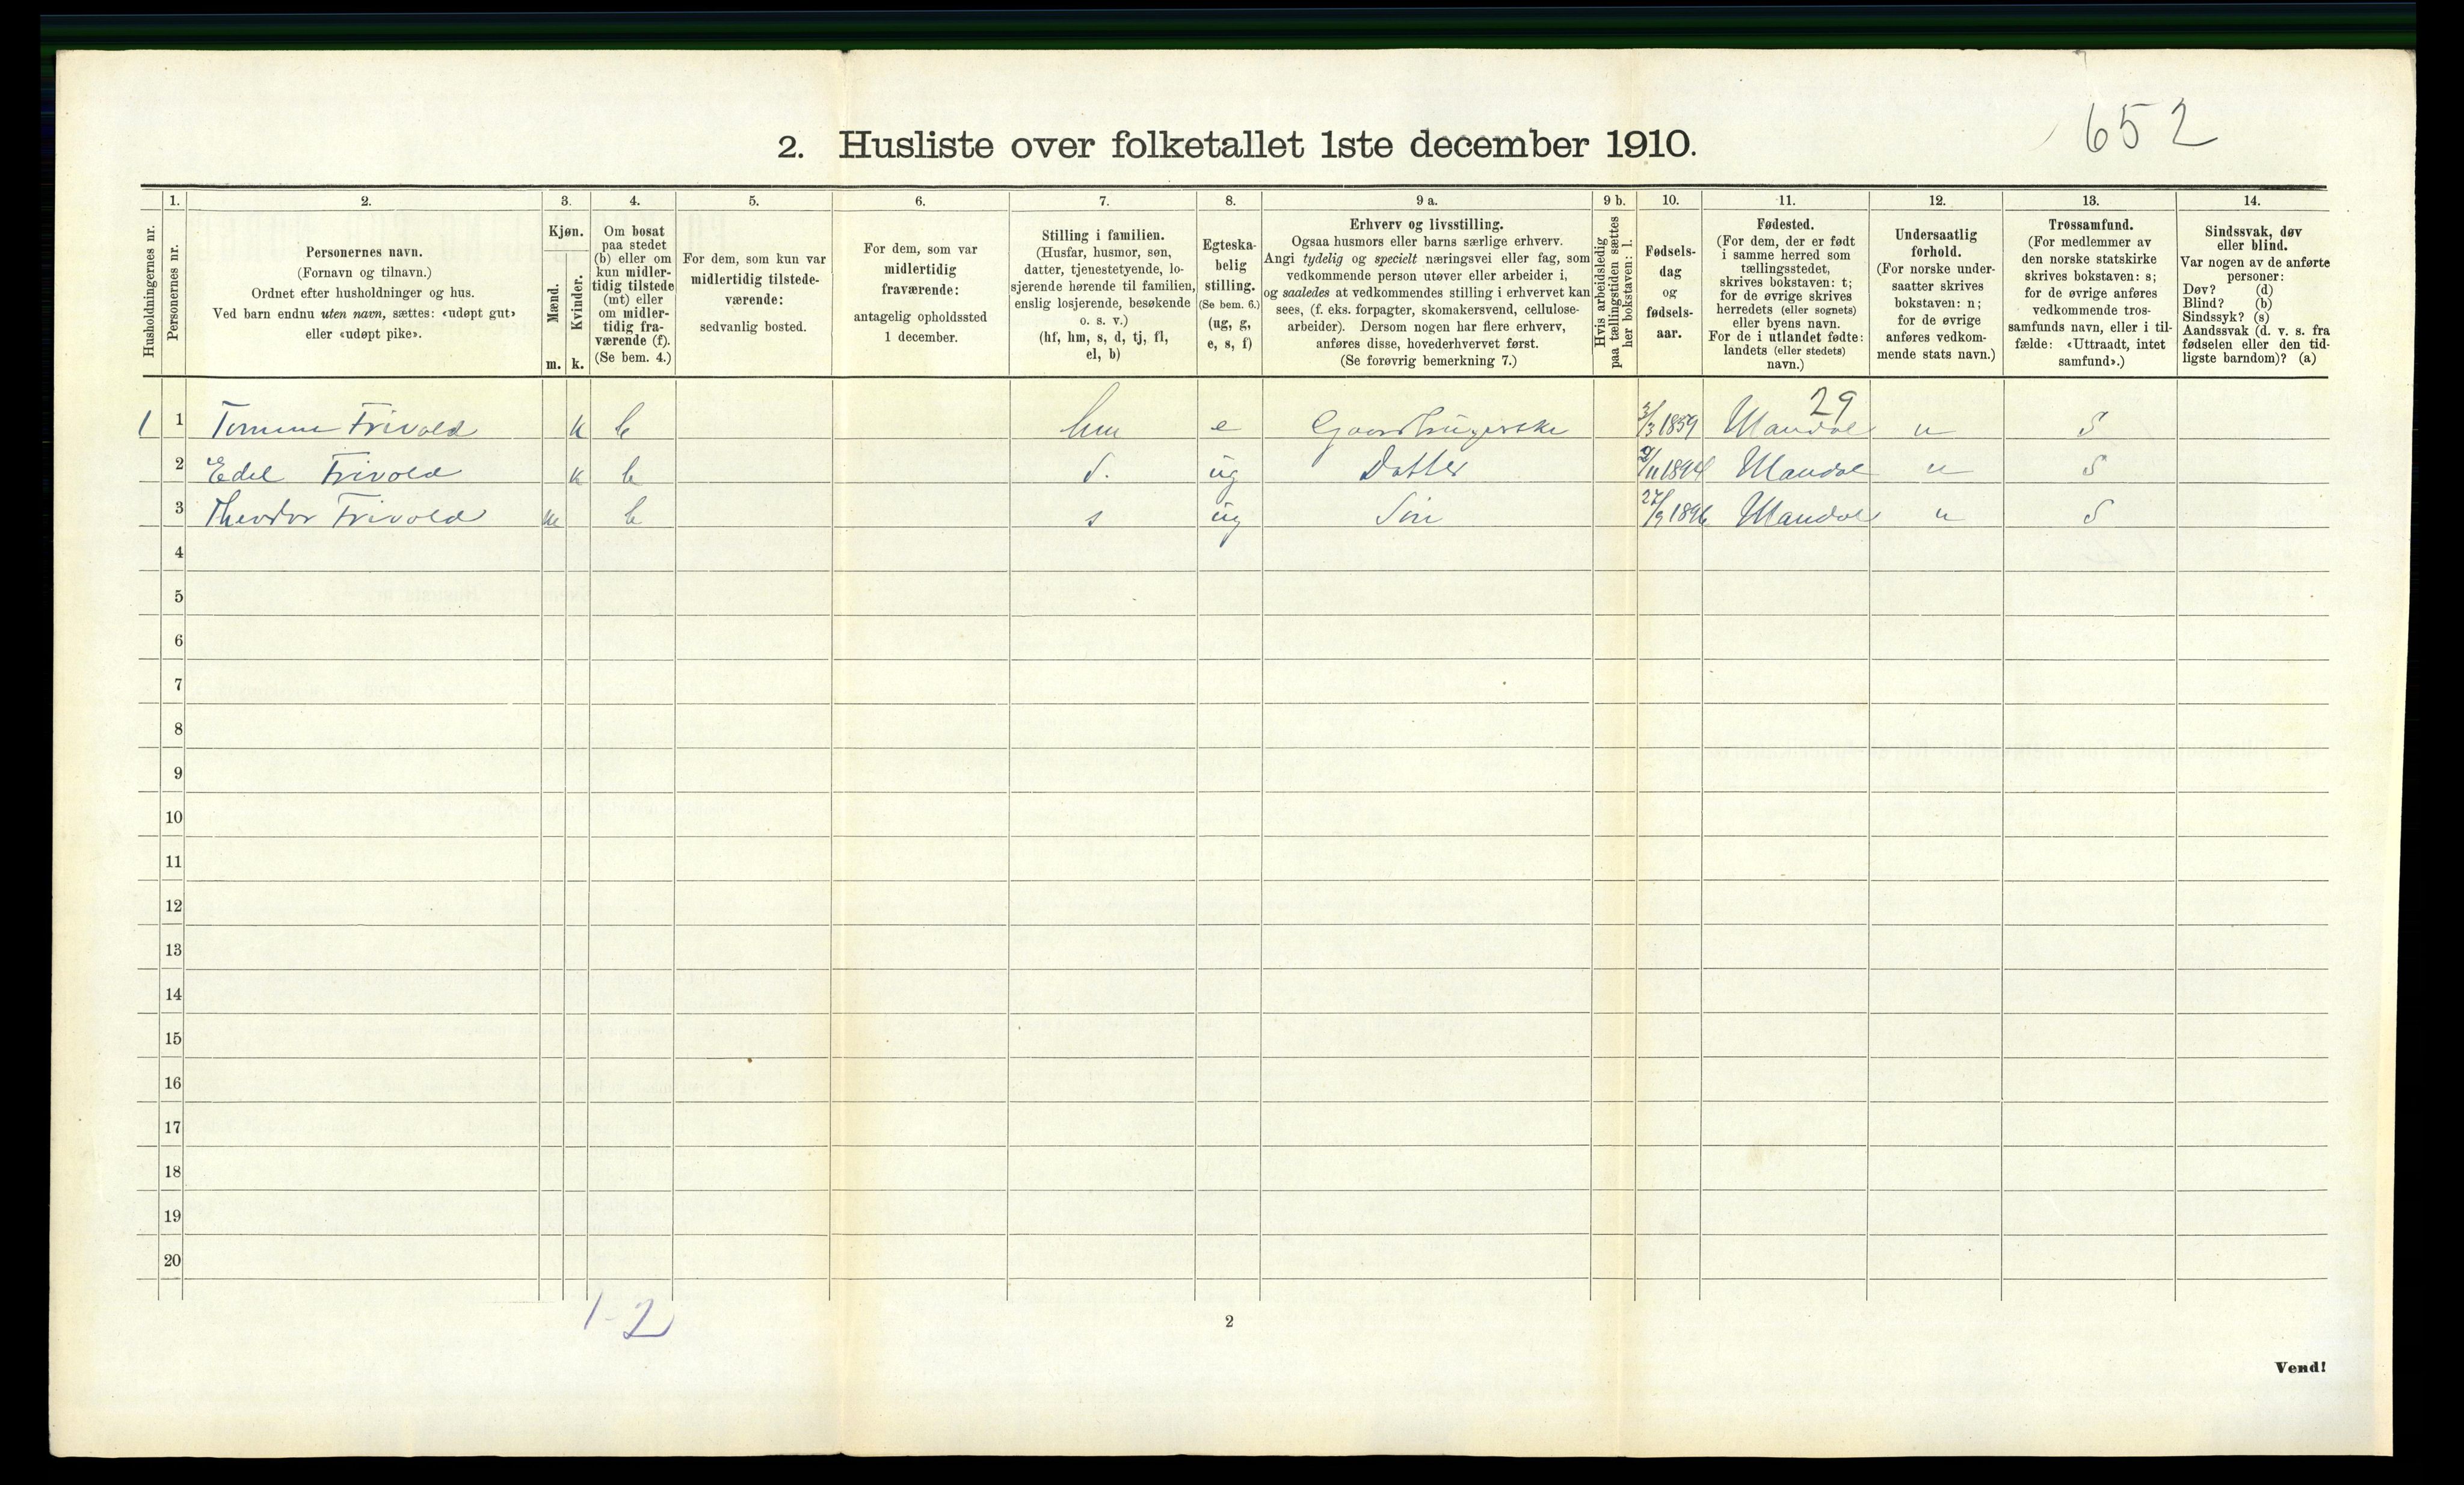 652
2. Husliste over folketallet 1ste december 1910.
Husholdningernes nr.
1.
Personernes nr.
2.
Personernes navn.
(Fornavn og tilnavn.)
Ordnet efter husholdninger og hus.
Ved barn endnu uten navn, sættes: «udøpt gut»
eller «udøpt pike».
3.
Kjøn.
Mænd.
m.
Kvinder.
k.
4.
Om bosat
paa stedet
(b) eller om
kun midler-
tidig tilstede
(mt) eller
om midler-
tidig fra-
værende (f).
(Se bem. 4.)
5.
For dem, som kun var
midlertidig tilstede-
værende:
sedvanlig bosted.
6.
For dem, som var
midlertidig
fraværende:
antagelig opholdssted
1 december.
7.
Stilling i familien.
(Husfar, husmor, søn,
datter, tjenestetyende, lo-
sjerende hørende til familien,
enslig losjerende, besøkende
o. s. v.)
(hf, hm, s, d, tj, fl,
el, b)
8.
Egteska-
belig
stilling.
(Se bem. 6.)
(ug, g,
e, s, f)
9 a.
Erhverv og livsstilling.
Ogsaa husmors eller barns særlige erhverv.
Angi tydelig og specielt næringsvei eller fag, som
vedkommende person utøver eller arbeider i,
og saaledes at vedkommendes stilling i erhvervet kan
sees, (f. eks. forpagter, skomakersvend, cellulose-
arbeider). Dersom nogen har flere erhverv,
anføres disse, hovederhvervet først.
(Se forøvrig bemerkning 7.)
9 b.
Hvis arbeidsledig
paa tællingstiden sættes
her bokstaven: l.
10.
Fødsels-
dag
og
fødsels-
aar.
11.
Fødested.
(For dem, der er født
i samme herred som
tællingsstedet,
skrives bokstaven: t;
for de øvrige skrives
herredets (eller sognets)
eller byens navn.
For de i utlandet fødte:
landets (eller stedets)
navn.)
12.
Undersaatlig
forhold.
(For norske under-
saatter skrives
bokstaven: n;
for de øvrige
anføres vedkom-
mende stats navn.)
13.
Trossamfund.
(For medlemmer av
den norske statskirke
skrives bokstaven: s;
for de øvrige anføres
vedkommende tros-
samfunds navn, eller i til-
fælde: «Uttraadt, intet
samfund».)
14.
Sindssvak, døv
eller blind.
Var nogen av de anførte
personer:
Døv? (d)
Blind? (b)
Sindssyk? (s)
Aandssvak (d. v. s. fra
fødselen eller den tid-
ligste barndom)? (a)
29
1 1 Frivold k b hm e 3/3 1859 Mandal n S
2 Edel Frivold k b d. ug Datter /11 1894 Mandal n S
3 Theodor Frivold m b s ug Sön 27/9 1896 Mandal n S
4
5
6
7
8
9
10
11
12
13
14
15
16
17
18
19
20
1-2
2
Vend!